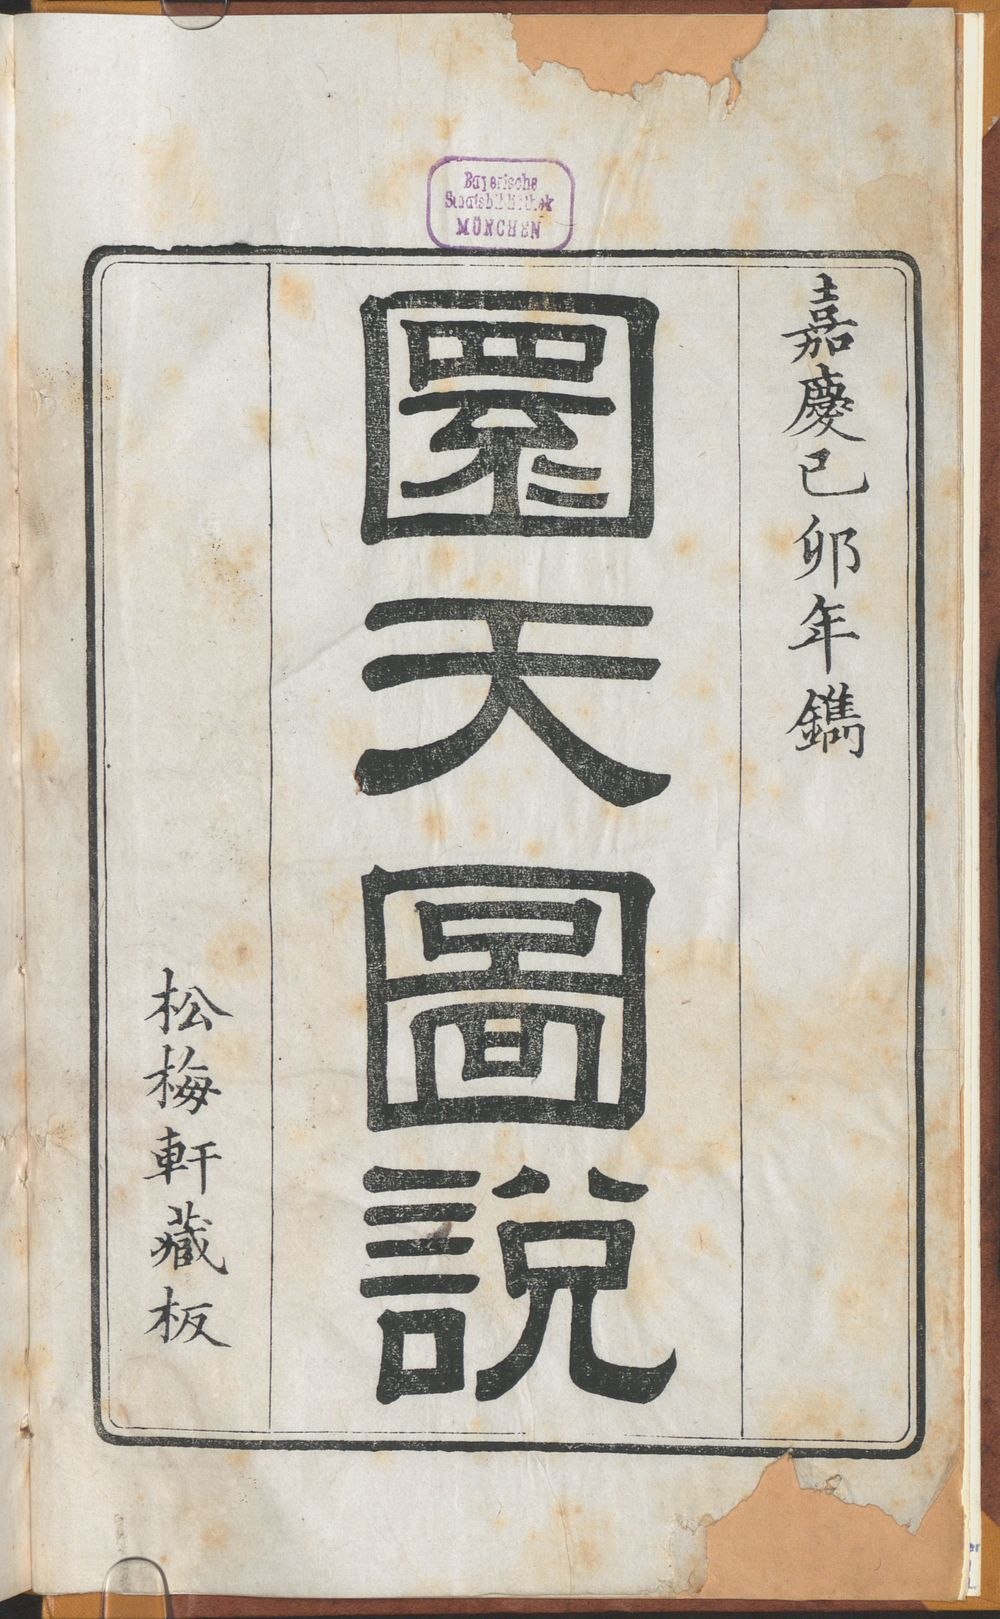 Bayerische
Staatsbibliothek
MÜNCHEN
嘉慶己卯年鐫
圜天圖說
松梅軒藏板